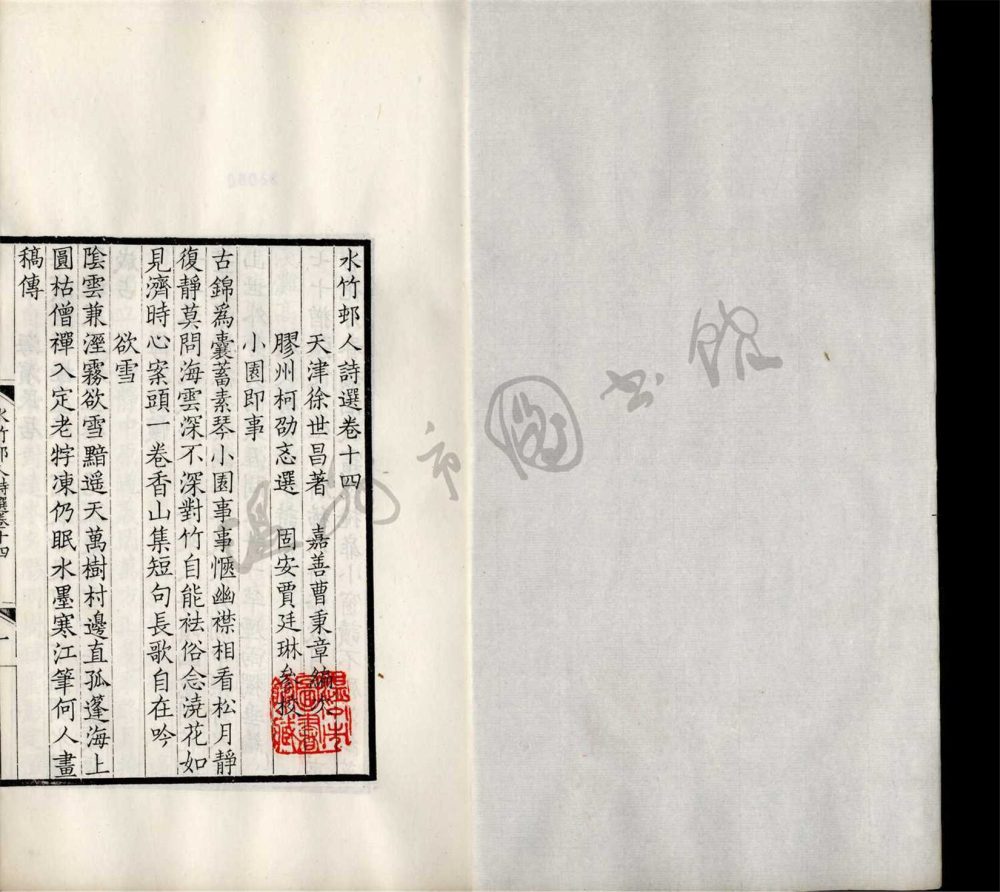 水竹邨人詩選卷十四
天津徐世昌著 嘉善曹秉章編次
膠州柯劭忞選 固安賈廷琳參校
小園即事
古錦爲囊蓄素琴小園事事愜幽襟相看松月靜
復靜莫問海雲深不深對竹自能祛俗念澆花如
見濟時心案頭一卷香山集短句長歌自在吟
欲雪
陰雲兼溼霧欲雪黯遥天萬樹村邊直孤蓬海上
圓枯僧禪入定老牸凍仍眠水墨寒江筆何人畫
稿傳
水竹邨人詩選卷十四
一
溫州市圖書館
溫州市圖書館藏